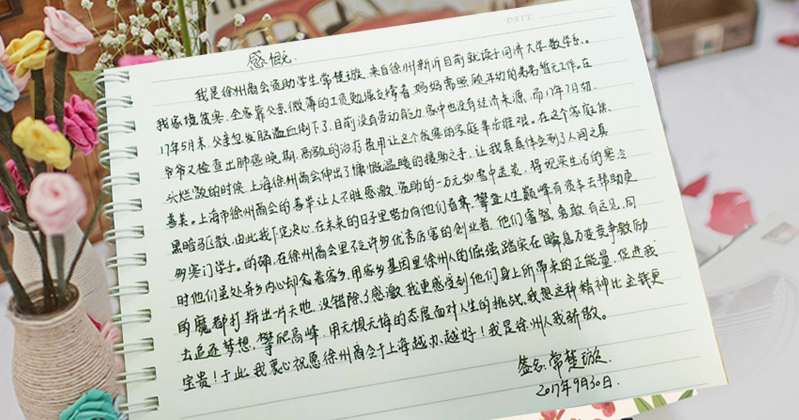 DATE
感慨
我是徐州商会资助学生常楚璇,来自徐州新沂目前就读于同济大学数学系。
我家境贫寒,全家靠父亲微薄的工资勉强支撑着,妈妈需照顾年幼的弟弟暂无工作。在
17年5月末,父亲忽发脑溢血倒下了,目前没有劳动能力,家中也没有经济来源,而17年7月初,
爷爷又检查出肺癌晚期,高额的治疗费用让这个贫寒的家庭举步维艰。在这个家庭焦
头烂额的时候,上海徐州商会伸出了慷慨温暖的援助之手,让我真真体会到了人间之真
善美。上海市徐州商会的善举让人不胜感激,资助的一万元如雪中送炭,将祝家生活的寒冷
黑暗驱散,由此我下定决心,在未来的日子里努力向他们看齐,攀登人生巅峰有资本去帮助更
多寒门学子。的确,在徐州商会里不乏许多优秀厉害的创业者,他们睿智,勇敢,有远见,同
时他们虽处异乡内心却念着家乡,用家乡基因里徐州人的倔强踏实在瞬息万变竞争激励
的魔都打拼出一片天地。没错除了感激,我更感受到他们身上所带来的正能量,促进我
去追逐梦想,攀爬高峰,用无惧无悔的态度面对人生的挑战。我想这种精神比金钱更
宝贵!于此,我衷心祝愿徐州商会于上海越办越好!我是徐州人我骄傲。
签名:常楚璇
2017年9月30日.